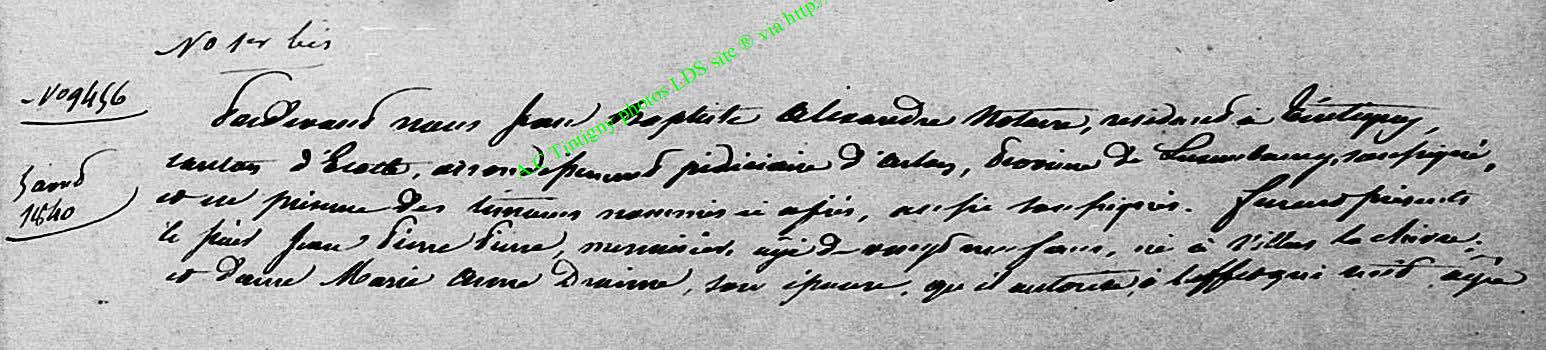 No 1er bis
No 9456
Pardevant nous Jean Baptiste Alexandre Notaire, résidant à Tintigny,
canton d'Etalle, arrondissement judiciaire d'Arlon, Province de Luxembourg, soussigné,
5 avril
1840
et en présence des témoins nommés ci après, aussi soussignés. Furent présents
le sieur Jean Pierre Pierre, menuisier, agé de vingt neuf ans, né à Villers la
et dame Marie Anne, son épouse, qu'il autorise, à l'effet qui suit, agée
A.C Tintigny photos LDS site ® via http:/